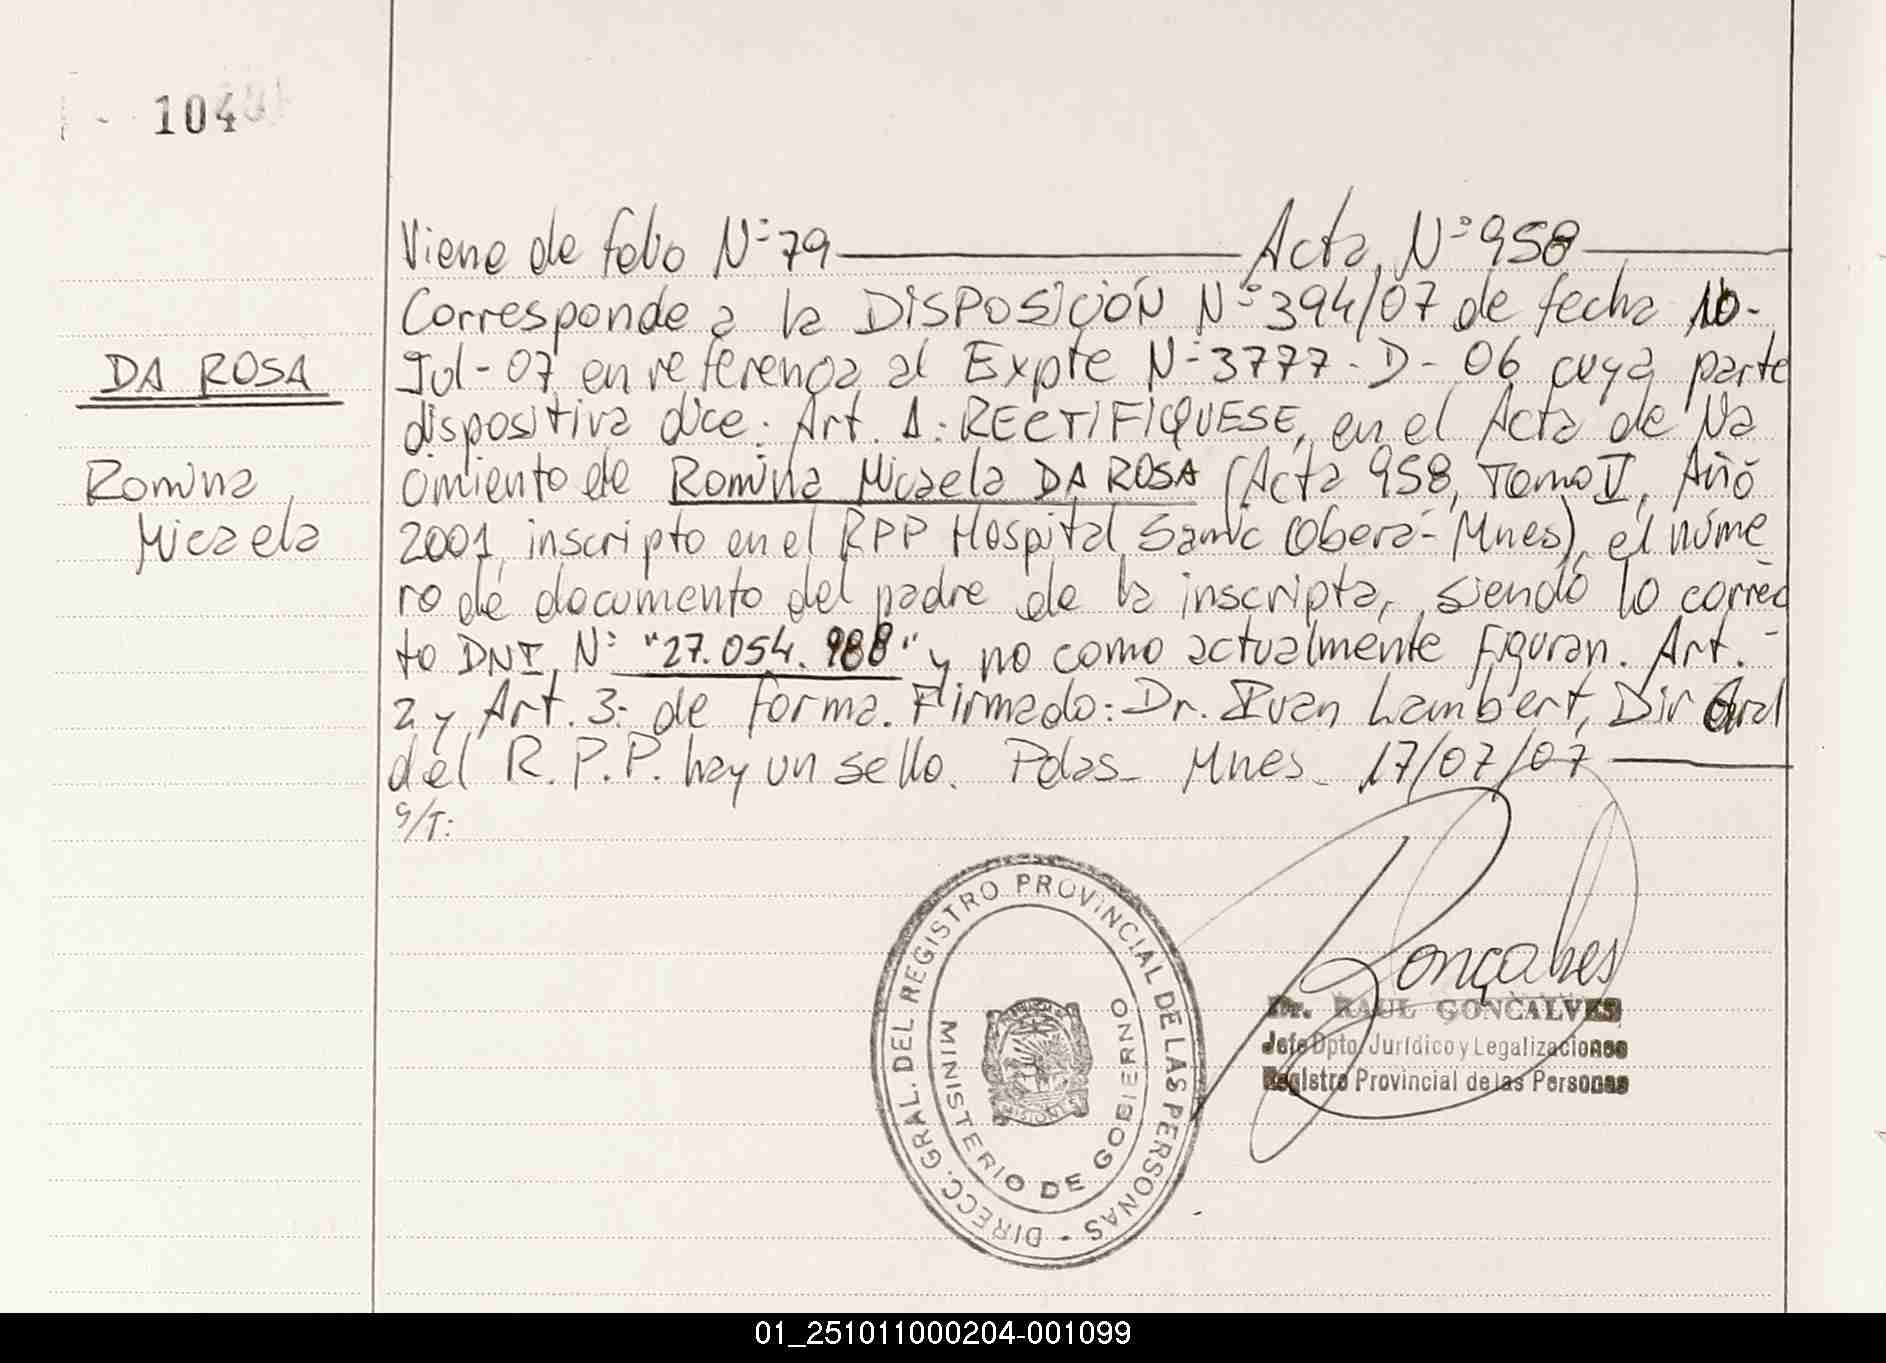 104
Viene de folio Nº 79 Acta Nº 958
Corresponde a la DISPOSICIÓN Nº 394/07 de fecha 10-
DA ROSA
Jul-07 en referencia al Expte Nº 3777-D-06 cuya parte
dispositiva dice: Art. 1: RECTIFIQUESE, en el Acta de Na
Romina
Micaela
cimiento de Romina Micaela DA ROSA (Acta 958, Tomo V, Año
2001, inscripto en el RPP Hospital Samic Oberá-Mnes), el núme
ro de documento del padre de la inscripta, siendo lo correc
to DNI Nº "27.054.988" y no como actualmente figuran. Art.-
2 y Art. 3- de forma. Firmado: Dr. Ivan Lambert, Dir Gral
del R.P.P. hay un sello. Pdas- Mnes- 17/07/07
S/T:
DIRECC. GRAL. DEL REGISTRO PROVINCIAL DE LAS PERSONAS -
MINISTERIO DE GOBIERNO
MISIONES
Gonçalves
Dr. RAUL GONÇALVES
Jefe Dpto. Jurídico y Legalizaciones
Registro Provincial de las Personas
01_251011000204-001099